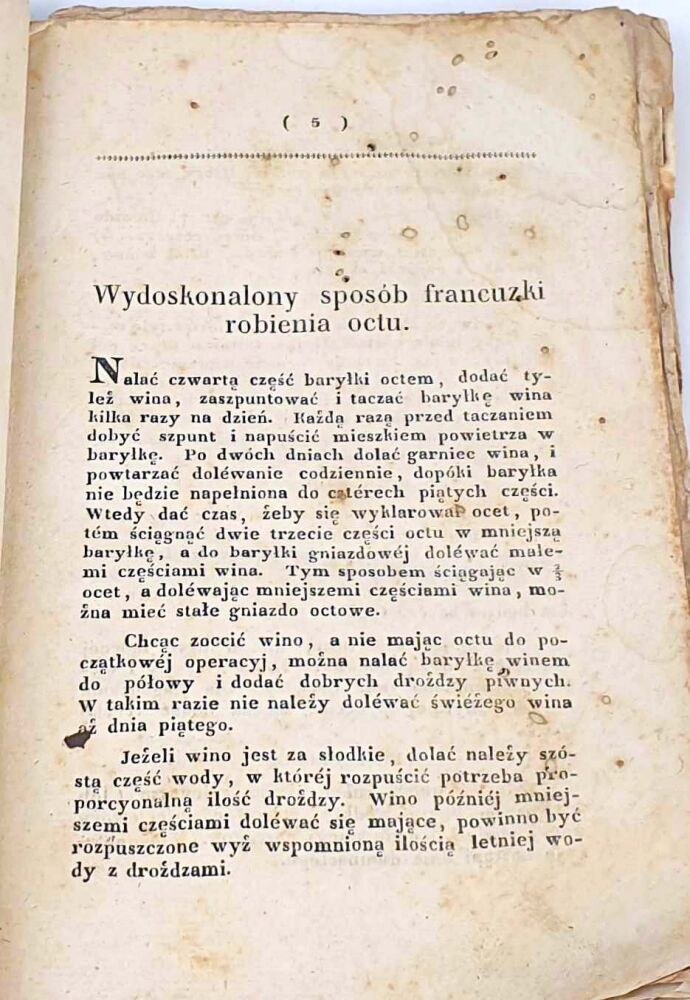 ( 5 )
Wydoskonalony sposób francuzki
robienia octu.
Nalać czwartą część baryłki octem, dodać ty-
leż wina, zaszpuntować i taczać baryłkę wina
kilka razy na dzień. Każdą razą przed taczaniem
dobyć szpunt i napuścić mieszkiem powietrza w
baryłkę. Po dwóch dniach dolać garniec wina, i
powtarzać doléwanie codziennie, dopóki baryłka
nie będzie napełniona do czterech piątych części.
Wtedy dać czas, żeby się wyklarował ocet, po-
tém ściągnąć dwie trzecie części octu w mniejszą
baryłkę, a do baryłki gniazdowéj doléwać małe-
mi częściami wina. Tym sposobem ściągając w ⅔
ocet, a doléwając mniejszemi częściami wina, mo-
żna mieć stałe gniazdo octowe.
Chcąc zoccić wino, a nie mając octu do po-
czątkowéj operacyj, można nalać baryłkę winem
do półowy i dodać dobrych drożdzy piwnych.
W takim razie nie należy doléwać świéżego wina
aż dnia piątego.
Jeżeli wino jest za słodkie, dolać należy szó-
stą część wody, w któréj rozpuścić potrzeba pro-
porcyonalną ilość drożdzy. Wino późniéj mniej-
szemi częściami doléwać się mające, powinno być
rozpuszczone wyż wspomnioną ilością letniej wo-
dy z drożdzami.